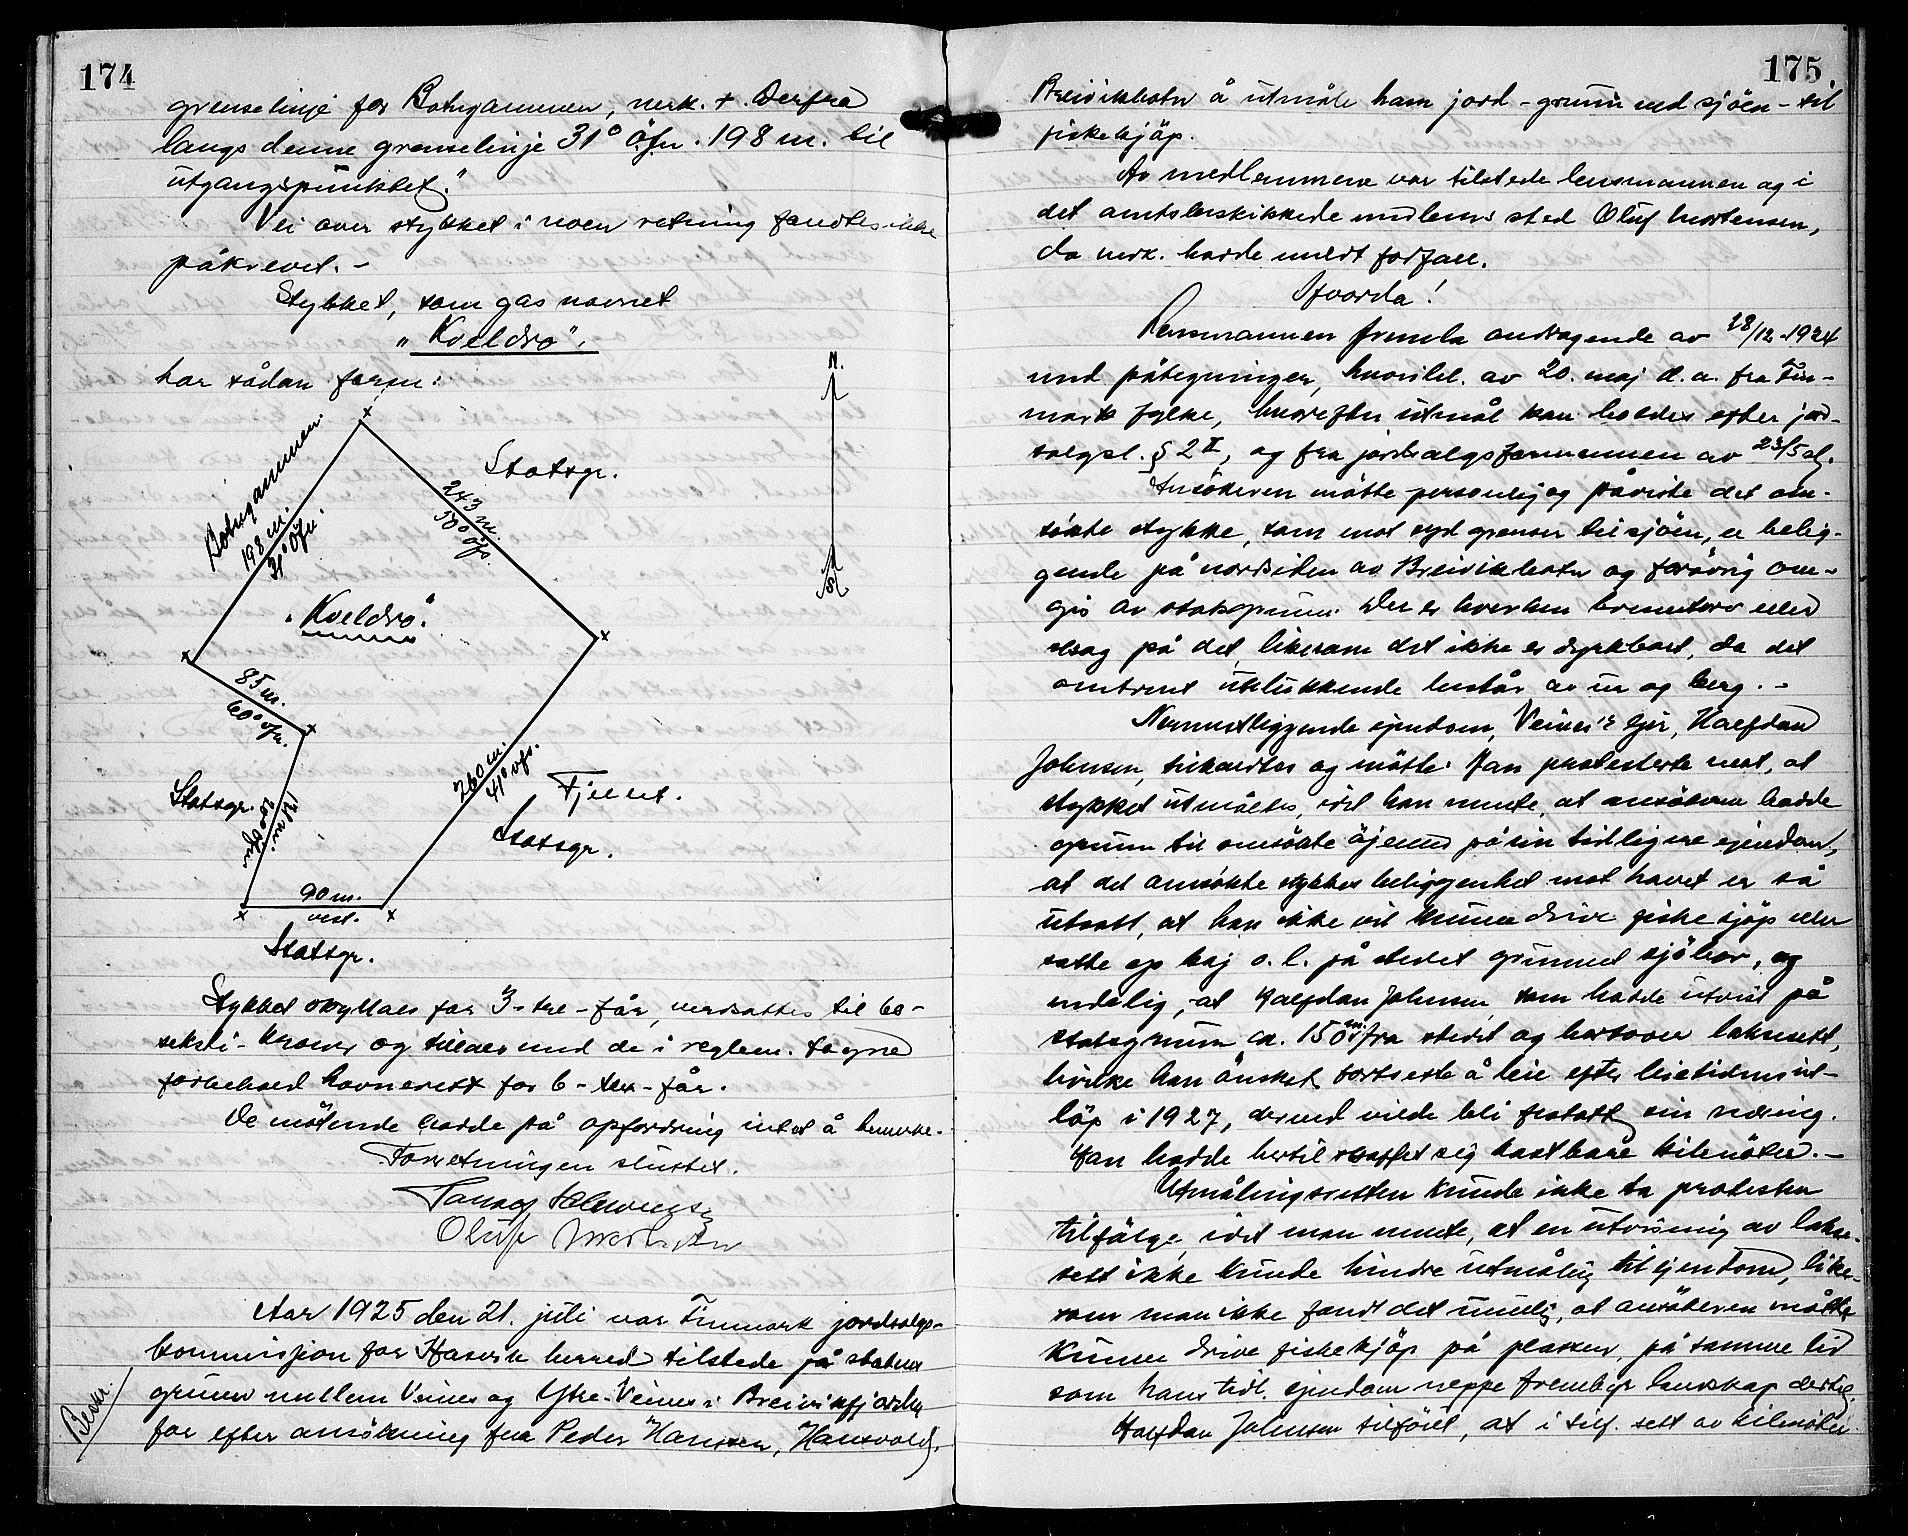 174
grenselinje for Botngammen, merk. +. Derfra
langs denne grenselinje 31° ö.f.n. 198 m. til
utgangspunktet."
Vei over stykket i noen retning fandtes ikke
påkrevet. -
Stykket, som gas navnet
"Kveldro".
har sådan form:
N.
S.
Botngammen
198 m.
31° öfn.
Statsgr.
243 m.
50° öfs.
"Kveldro".
85 m.
60° vfn.
Statsgr.
121 m.
260 m.
41° vfs.
Tjent.
Statsgr.
90 m.
vest.
Statsgr.
Stykket skyldtes for 3-tre-får, verdsattes til 60-
seksti-kroner og tildeles med de i reglem. tagne
forbehold havnerett for 6-sex-får.
De møtende hadde på opfordring intet å bemerke.
Forretningen sluttet.
Oluf Mortensen
Beskr.
Aar 1925 den 21. juli var Finmark jordsalgs-
kommisjon for Hasvik herred tilstede på statens
grunn mellem Veines og Ytre-Veines i Breivikfjorden
for efter ansökning fra Peder Hansen, Hansvold,
175.
Breivikbotn å utmåle ham jord - grunn ved sjöen - til
fiskekjöp.
Av medlemmene var tilstede lensmannen og i
det amtsbeskikkede medlems sted Oluf Mortensen,
da merk. hadde meldt forfall.
Hvorda!
Lensmannen fremla andragende av 28/12-1924
med påtegninger, hvoriblt. av 20. maj d.a. fra Fin-
mark fylke, hvorefter utmål kan holdes efter jord-
salgsl. § 2 II, og fra jordsalgsformannen av 23/5 d.a.
Ansökeren mötte personlig og påviste det om-
sökte stykke, som mot syd grenser til sjöen, er belig-
gende på nordsiden av Breivikbotn og forövrig om-
gis av statsgrunn. Der er hverken brendtorv eller
skog på det, likesom det ikke er dyrkbart, da det
omtrent utelukkende består av ur og berg. -
Nermestliggende ejendom, Veines's ejer, Halfdan
Johnsen, tilkaldtes og mötte. Han protesterte mot, at
stykket utmåltes, idet han mente, at ansökeren hadde
grunn til omsökte öjemed på sin tidligere ejendom,
at det ansökte stykkes beliggenhet mot havet er så
utsatt, at han ikke vil kunne drive fiskekjöp eller
sette op kaj o.l. på stedet grunnet sjöbor, og
endelig, at Halfdan Johnsen, som hadde utvist på
statsgrunn ca. 150 m. fra stedet og bortover laksesett,
hvilke han önsket fortsette å leie efter leietidens ut-
löp i 1927, dermed vilde bli fratatt sin næring.
Han hadde hertil skaffet sig kostbare kilenöter. -
Utmålingsretten kunde ikke ta protesten
tilfölge, idet man mente, at en utvisning av lakse-
sett ikke kunde hindre utmåling til ejendom, like-
som man ikke fandt det umulig, at ansökeren måtte
kunne drive fiskekjöp på plassen, på samme tid
som hans tidl. ejendom neppe frembyr landskap dertil.
Halfdan Johnsen tilföiet, at i tilf. sett av kilenöter